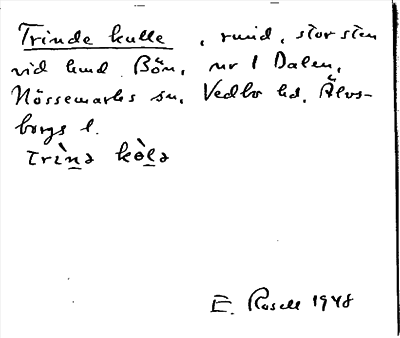 Trinde kulle, rund, stor sten
vid hmd Bön, nr 1 Dalen,
Nössemarks sn, Vedbo hd, Älvs-
borgs l.
trìnə kòlə
E. Rosell 1948